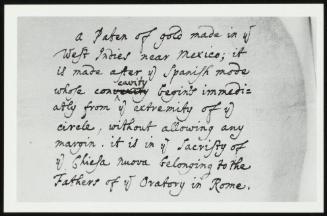 a Paten of gold made in yͤ
West Indies near Mexico; it
is made after yͤ Spanish mode
whose concavity begins immedi=
atly from yͤ extremity of yͤ
circle, without allowing any
margin. it is in yͤ Sacristy of
yͤ Chiesa nuova belonging to the
Fathers of yͤ Oratory in Rome.